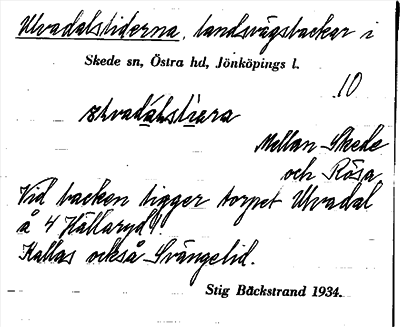 Ulvadalsliderna, landsvägsbackar i
Skede sn, Östra hd, Jönköpings l.
10
Mellan Skede
och Rösa
Vid backen ligger torpet Ulvadal
å 4 Hällaryd.
Kallas också Svängelid.
Stig Bäckstrand 1934.